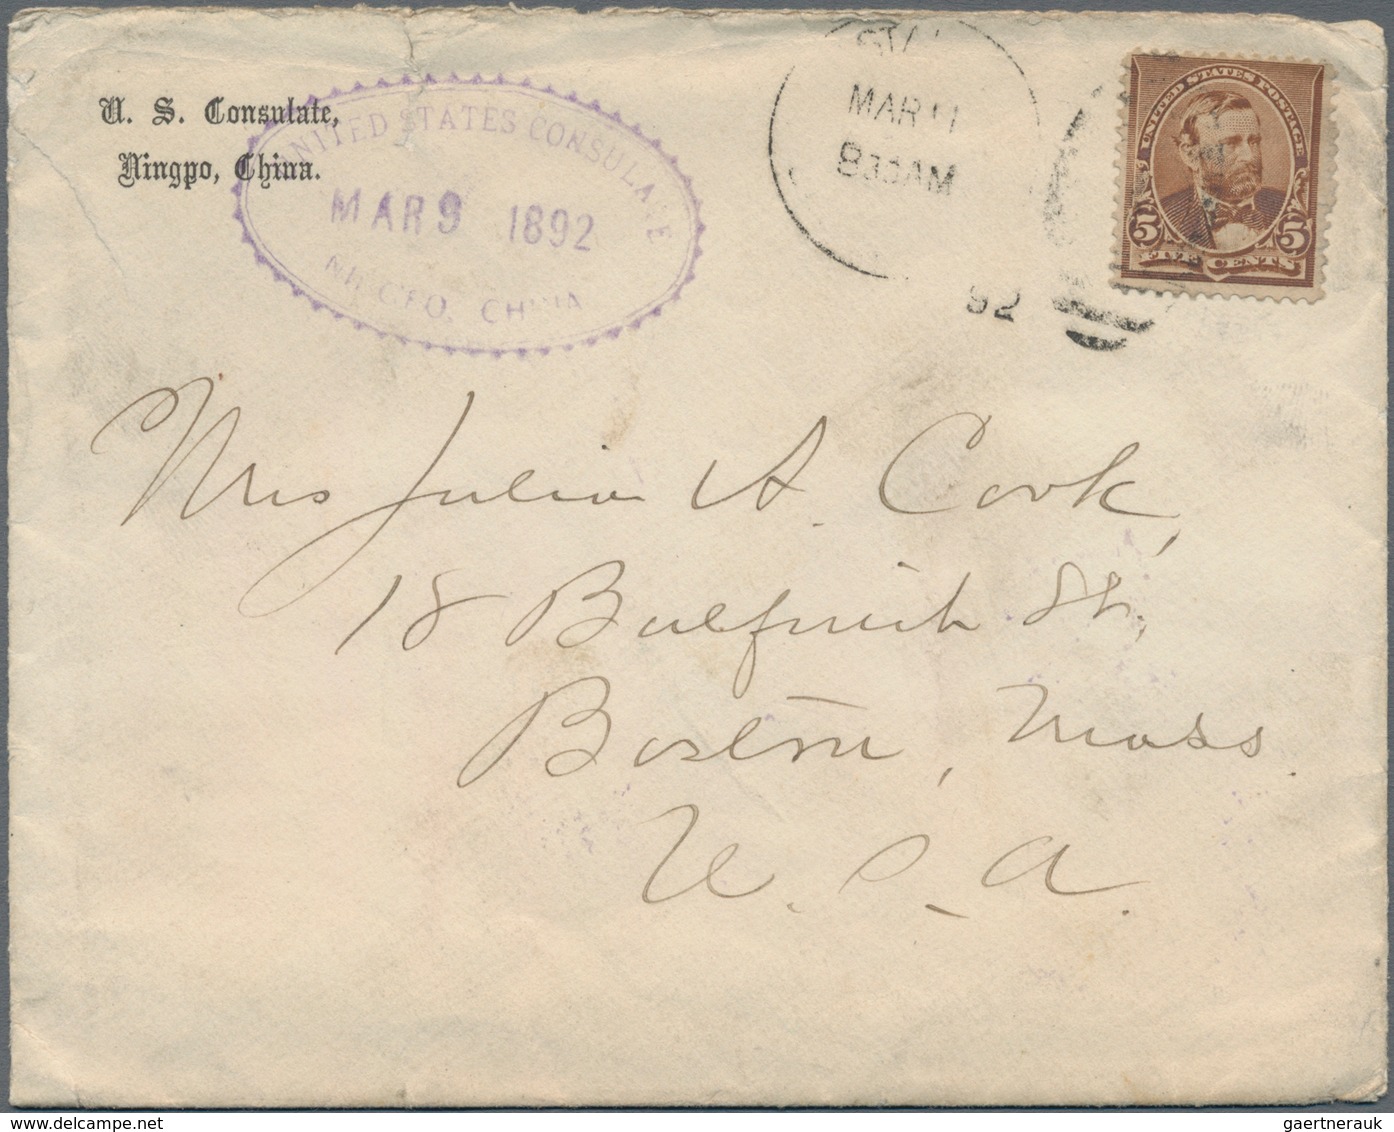 U. S. Consulate,
Ningpo, China.
UNITED STATES CONSULATE
MAR 9 1892
NINGPO, CHINA
MAR 11
AM
92
UNITED STATES POSTAGE
5 5
FIVE CENTS
Mrs Julia A. Cook,
18 Bulfinch St.,
Boston, Mass.
U. S. A.
gaertnerauk